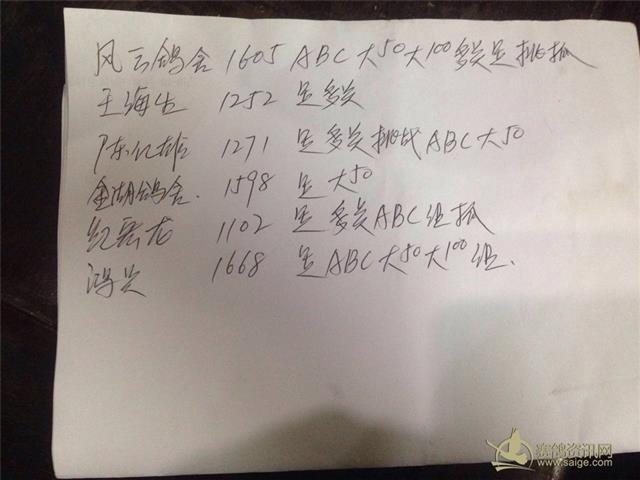 风云鸽舍 1605 ABC大50大100多关足挑抓
王海生 1252 足多关
陈亿雄 1271 足多关挑战ABC大50
金湖鸽舍. 1598 足大50
龙 1102 足多关ABC组抓
鸿兴 1668 足ABC大50大100组.
赛鸽资讯网
www.saige.com